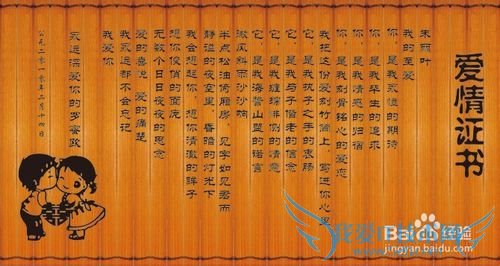 爱情证书
宋雨叶
我的至爱
你,是我永恒的期待
你,是我毕生的追求
你,是我情感的归宿
你,是我刻骨铭心的爱恋
我把这份爱刻竹简上,写进你心里
它,是我执子之手的衷肠
它,是我与子偕老的信念
它,是我缠绵悱恻的情意
它,是我海誓山盟的诺言
微风 沙沙响
半点松油倚厢房,见字如见君面
静谧的夜空里,昏暗的灯光下
我会想起你,想你清澈的眸子
想你俊俏的面庞
无数个日日夜夜的思念
爱的喜悦 爱的痛楚
我永远都不会忘记
我爱你
永远深爱你的罗密欧
公元二零一零年二月十四日
Baidu经验
jingyan.baidu.com